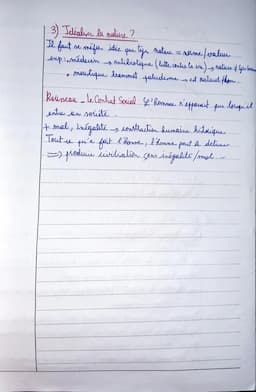 3) Idéaliser la nature ?
Il faut se méfier idée que tjrs nature = norme/valeur
exp : médecin → antibiotique (lutte contre la vie) → nature ≠ tjrs bonne
• moustique transmet paludisme → est naturel
Rousseau - Le Contrat Social : l'Homme n'apparaît que lorsqu'il
entre en société
+ mal, inégalité → construction humaine historique
Tout ce qu'a fait l'Homme, l'Homme peut le défaire
=> produire civilisation sans inégalité/mal